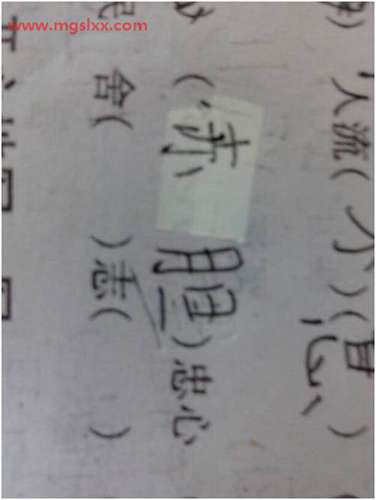 www.mgslxx.com
人流(不)(息)
(赤胆)忠心
舍( )志( )